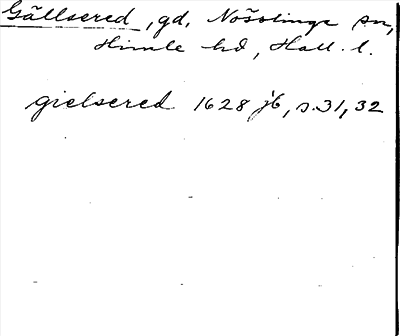 Gällsered, gd, Nösslinge sn,
Himle hd, Hall. l.
gielsered 1628 jb, s. 31, 32